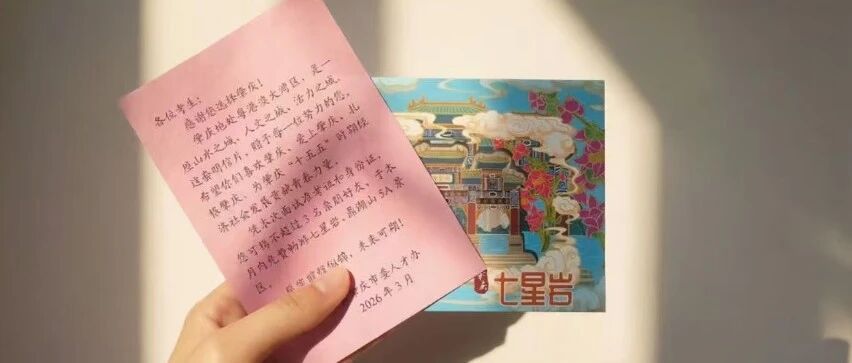 各位考生：
感谢您选择肇庆！
肇庆地处粤港澳大湾区，是一
座山水之城、人文之城、活力之城。
这套明信片，赠予每一位努力的您，
希望你们喜欢肇庆、爱上肇庆、扎
根肇庆，为肇庆“十五五”时期经
济社会发展贡献青春力量。
凭本次面试准考证和身份证，
您可携不超过3名亲朋好友，于本
月内免费畅游七星岩、鼎湖山5A景
区。
未来可期！
肇庆市委人才办
2026年3月
七星岩